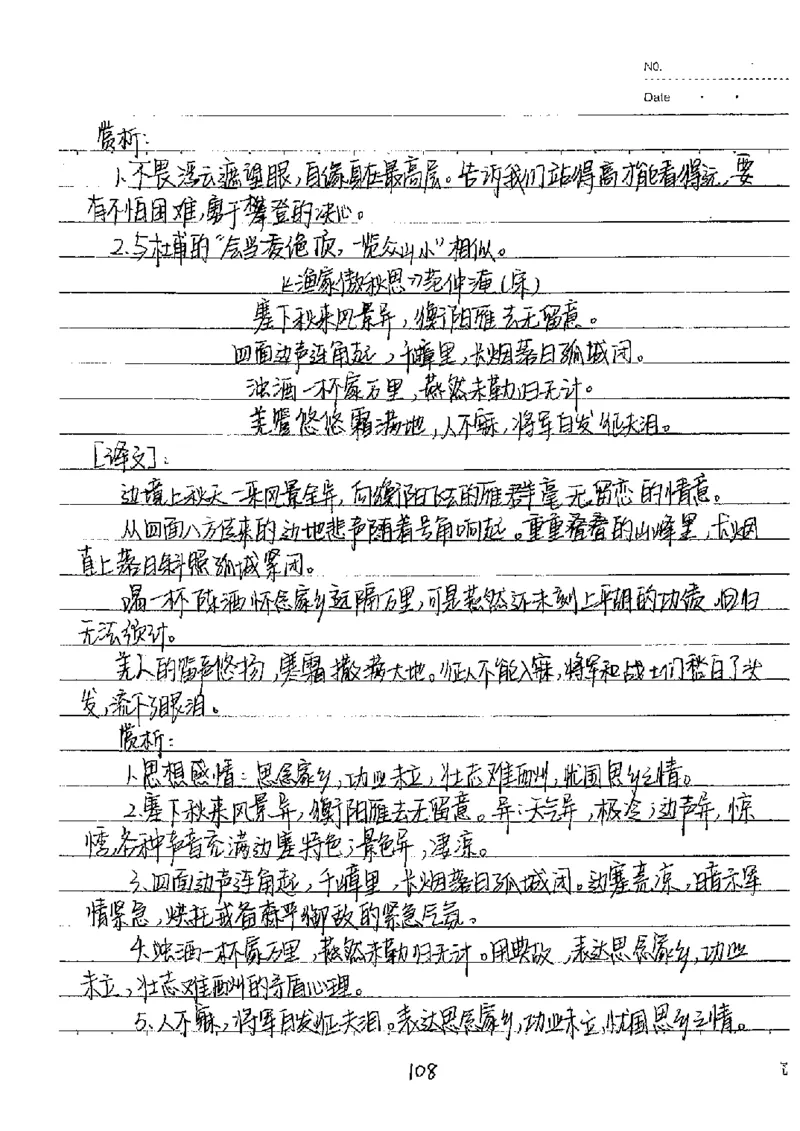 NO.
Date
赏析：
1、不畏浮云遮望眼，自缘身在最高层。告诉我们站得高才能看得远，要
有不怕困难，勇于攀登的决心。
2、与杜甫的“会当凌绝顶，一览众山小”相似。
《渔家傲秋思》范仲淹（宋）
塞下秋来风景异，衡阳雁去无留意。
四面边声连角起，千嶂里，长烟落日孤城闭。
浊酒一杯家万里，燕然未勒归无计。
羌管悠悠霜满地，人不寐，将军白发征夫泪。
[译文]：
边境上秋天一来风景全异，向衡阳飞去的雁群毫无留恋的情意。
从四面八方传来的边地悲声随着号角响起。重重叠叠的山峰里，长烟
直上落日斜照孤城紧闭。
喝一杯陈酒怀念家乡远隔万里，可是燕然还未刻上平胡的功绩，回归
无法预计。
羌人的笛声悠扬，寒霜撒满大地。征人不能入寐，将军和战士们愁白了头
发，流下了眼泪。
赏析：
1、思想感情：思念家乡，功业未立，壮志难酬，忧国思乡之情。
2、塞下秋来风景异，衡阳雁去无留意。异：天气异，极冷；边声异，惊
悸，各种声音充满边塞特色；景色异，凄凉。
3、四面边声连角起，千嶂里，长烟落日孤城闭。边塞荒凉，暗示军
情紧急，烘托戒备森严御敌的紧急气氛。
4、浊酒一杯家万里，燕然未勒归无计。用典故，表达思念家乡，功业
未立，壮志难酬的矛盾心理。
5、人不寐，将军白发征夫泪。表达思念家乡，功业未立，忧国思乡之情。
108